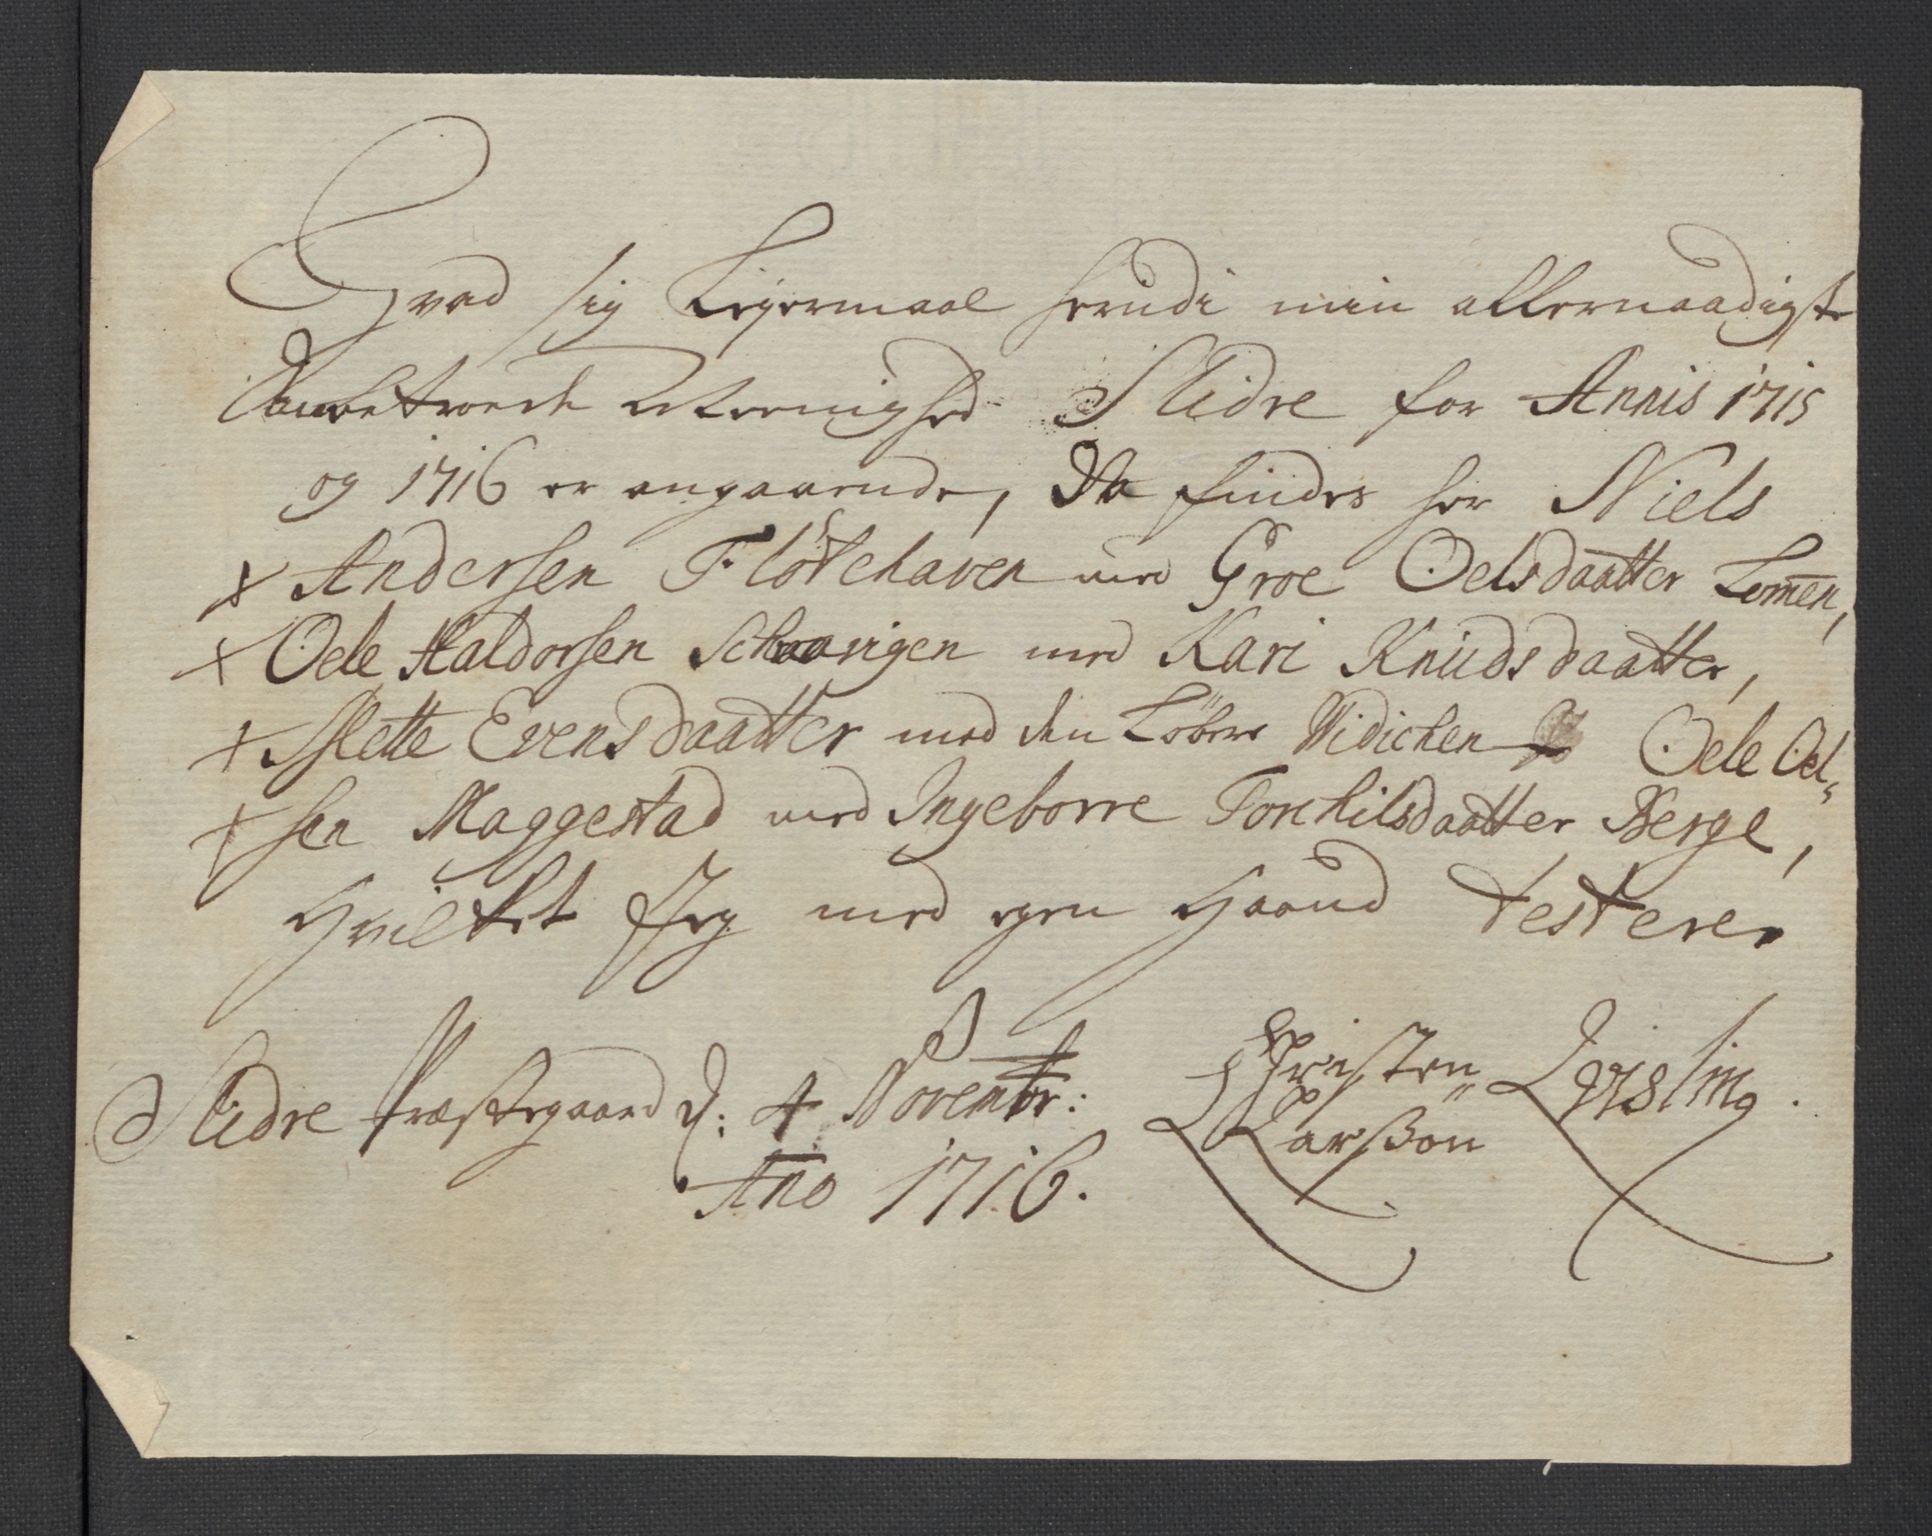 Hvad sig Leyermaal herudi min allernaadigste
anbetroede Meenighed Slidre for Annis 1715
og 1716 er angaaende, Da findes her Niels
+ Andersen Fløtehaven med Groe Oelsdaatter Lomen,
+ Oele Haldorsen med Kari Knudsdaatter,
+ Mette Evensdaatter med den Løbere Widichen Oele Oel-
+ sen Maggestad med Ingeborre Torchilsdaatter Berge,
Hvilket Jeg med egen Haand testerer
Slidre Præstegaard d: 4 Novembr:
Ano 1716.
Christen Larsson Leisling.